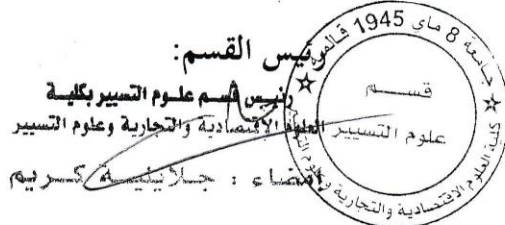 رئيس القسم:
رئيس قسم علوم التسيير بكلية
العلوم الإقتصادية والتجارية وعلوم التسيير
إمضاء : جلايلية كريم
جامعة 8 ماي 1945 قالمة
قسم
علوم التسيير
كلية العلوم الاقتصادية والتجارية وعلوم